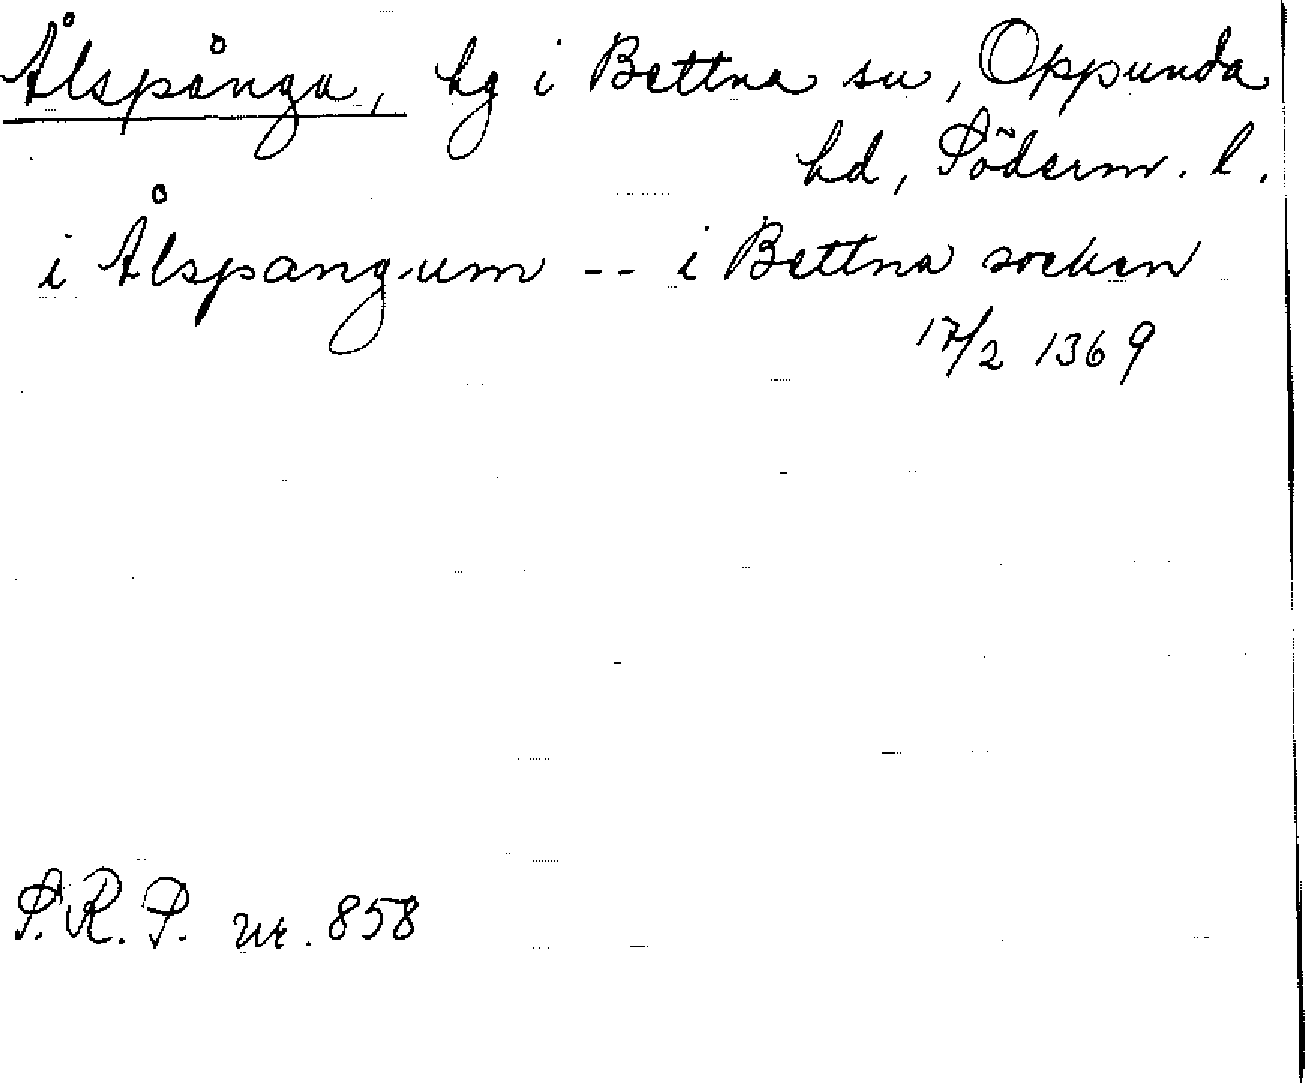 Ålspånga, hg i Bettna sn, Oppunda
hd, Söderm. l.
i Ålspangum -- i Bettna socken
17/2 1369
S.R.P. nr. 858